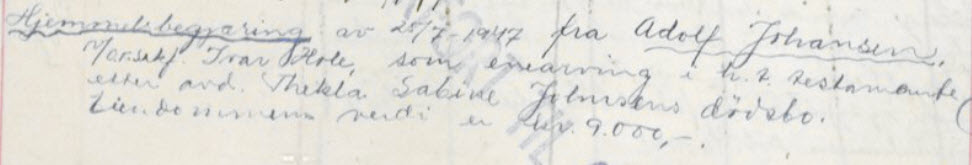 Hjemmelsbegjæring av 25/7-1947 fra Adolf Johansen,
v/o.r.sakf. Ivar Hole, som enearving i h.t. testamente
etter avd. Thekla Sabine Johnsens dödsbo.
Eiendommens verdi er kr. 9.000,-